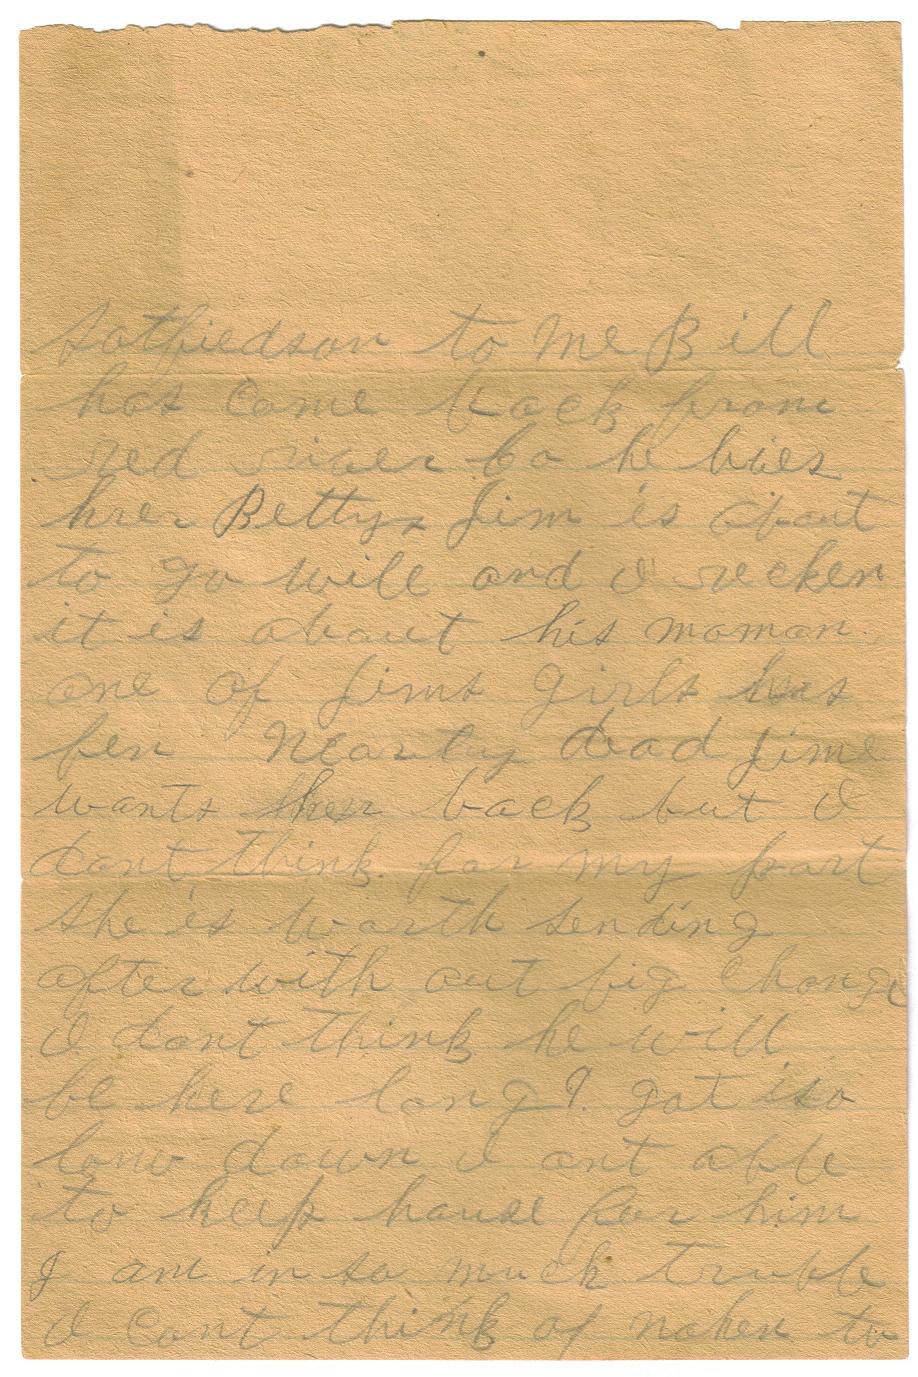 Satfiedson to Me Bill
has come back from
red river
hier Betty Jim is about
to go wile and I recken
it is about his moman.
one of Jims Girls has
ben Nearly dead Jime
wants her back but I
dont think for my part
she is worth sending
after with out big change
I dont think he will
be here long I. got so
low down I ant able
to keep house for him
I am in so much truble
I cant think of to